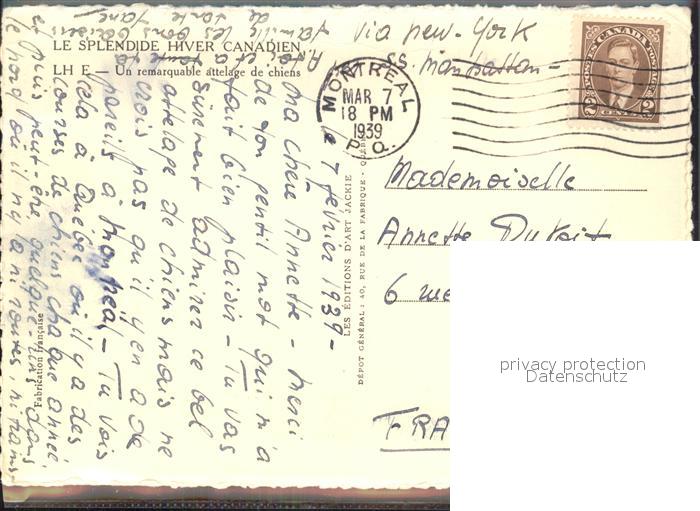 LE SPLENDIDE HIVER CANADIEN
LH E — Un remarquable attelage de chiens
via New-York
SS. Manhattan –
MONTREAL
MAR 7
18 PM
1939
P.Q.
POSTES CANADA POSTAGE
2 2
CENTS
le 7 février 1939 –
Ma chère Annette – Merci
de ton gentil mot qui m'a
fait bien plaisir – Tu vas
sûrement admirer ce bel
attelage de chiens mais ne
crois pas qu'il y en a de
pareils à Montréal – Tu vois
cela à Québec où il y a des
courses de chiens chaque année
et puis peut-être quelque-uns dans
le nord où il n'y a ni routes, ni trains
A toi et à toute ta
famille les bons baisers
de tante Jane
LES EDITIONS D'ART JACKIE
DÉPOT GÉNÉRAL : 40, RUE DE LA FABRIQUE - QUÉBEC
Fabrication française
Mademoiselle
Annette
6 rue
FRA
privacy protection
Datenschutz